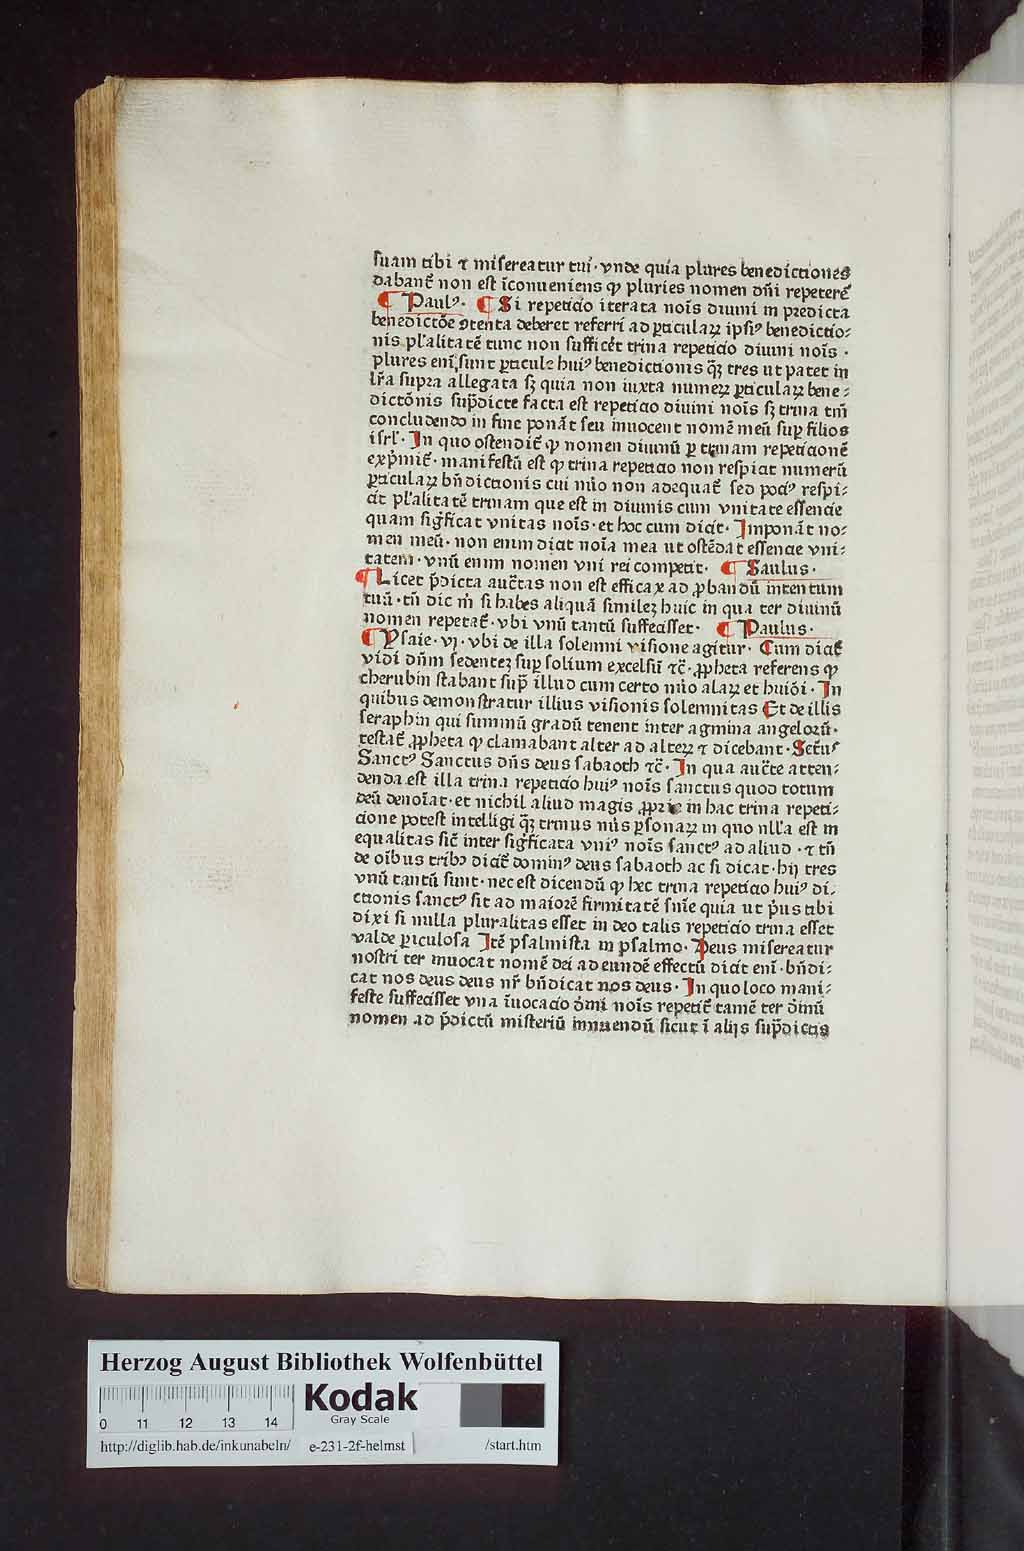 suam tibi ⁊ misereatur tui· vnde quia plures benedictiones
dabant̄ non est īconueniens ꝙ pluries nomen dn̄i repeteret̄
¶ Paulꝰ· ¶ Si repeticio iterata noīs diuini in predicta
benedictōe ꝯtenta deberet referri ad ꝑticulaꝝ ipsiꝰ benedictio⸗
nis pl'alitatē tunc non sufficet̄ trina repeticio diuini noīs·
plures eni͛ sunt ꝑticule huiꝰ benedictionis qꝫ tres ut patet in
lr̄a supra allegata sꝫ quia non iuxta numeꝝ ꝑticulaꝝ bene⸗
dictōnis sup̄dicte facta est repeticio diuini noīs sꝫ trina tm̄
concludendo in fine ponāt seu inuocent nomē meū suꝑ filios
isrl'· In quo ostendit̄ ꝙ nomen diuinū ꝑ trinam repeticionē
exp̄mit̄· manifestū est ꝙ trina repeticio non respiciat numerū
ꝑticulaꝝ bn̄dictionis cui mīo non adequat̄ sed pociꝰ respi⸗
cit pl'alitatē trinam que est in diuinis cum vnitate essencie
quam sig̅ficat vnitas noīs· et hoc cum dicit· Imponāt no⸗
men meū· non enim dicit noīa mea ut ostēdat essencie vni⸗
tatem· vnū enim nomen vni rei competit· ¶ Saulus·
¶ Licet p̄dicta auct̄as non est efficax ad ꝓbandū intentum
tuū· tn̄ dic m̄ si habes aliquā similez huic in qua ter diuinū
nomen repetat̄· vbi vnū tantū suffecisset· ¶ Paulus·
¶ Ysaie· vj· vbi de illa solemni visione agitur· Cum dicit̄
vidi dn̄m sedentez suꝑ solium excelsū ⁊c̄· ꝓpheta referens ꝙ
cherubin stabant sup̄ illud cum certo nūo alaꝝ et huiōi· In
quibus demonstratur illius visionis solemnitas Et de illis
seraphin qui summū gradū tenent inter agmina angeloꝛū·
testat̄ ꝓpheta ꝙ clamabant alter ad alteꝝ ⁊ dicebant· Sctū⸗
Sanctꝰ Sanctus dn̄s deus sabaoth ⁊c̄· In qua auct̄e atten⸗
denda est illa trina repeticio huiꝰ noīs sanctus quod totum
deū denoīat· et nichil aliud magis ꝓprie in hac trina repeti⸗
cione potest intelligi qꝫ trinus nūs ꝑsonaꝝ in quo nll'a est in
equalitas sic̄ inter sig̅ficata vniꝰ noīs sanctꝰ ad aliud· ⁊ tn̄
de oībus tribꝫ dicit̄ dominꝰ deus sabaoth ac si dicat· hij tres
vnū tantū sunt· nec est dicendū ꝙ hec trina repeticio huiꝰ di⸗
ctionis sanctꝰ sit ad maiorē firmitatē sn̄ie quia ut p̄us tibi
dixi si nulla pluralitas esset in deo talis repeticio trina esset
valde ꝑiculosa Itē psalmista in psalmo· Deus misereatur
nostri ter inuocat nomē dei ad eundē effectū dicit enī· bn̄di⸗
cat nos deus deus nr̄ bn̄dicat nos deus· In quo loco mani⸗
feste suffecisset vna īuocacio dīni noīs repetit̄ tamē ter dīinū
nomen ad p̄dictū misteriū innuendū sicut ī alijs sup̄dictis
Herzog August Bibliothek Wolfenbüttel
0 11 12 13 14
Kodak
Gray Scale
http://diglib.hab.de/inkunabeln/ e-231-2f-helmst /start.htm